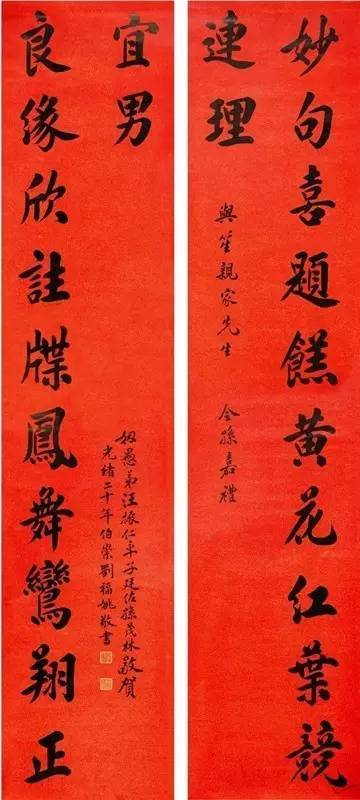 妙句喜題餻黄花红葉競
連理
與笙親家先生 令孫嘉禮
良缘欣註牒鳳舞鸞翔正
宜男
姻愚弟汪振仁率子廷佐孫茂林敬賀
光緒二十年伯崇劉福姚敬書